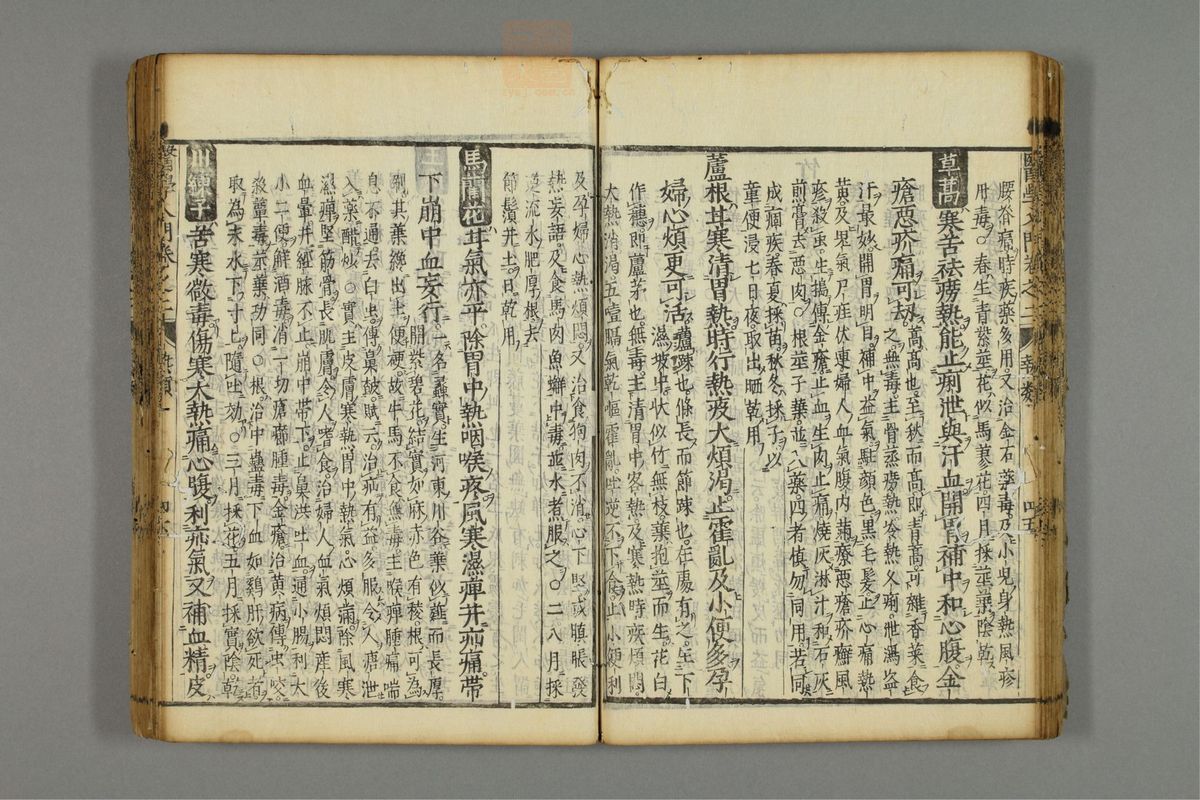 腰谷瘡時疾藥多用又治金石藥毒及小兒身熱風疹
肝毒春生青紫莖花似馬蓼花四月採莖葉陰乾
草蒿寒苦祛癆熱能止痢泄與汗血開胃補中和心腹金
瘡惡疥痛可劫
蒿高也至秋而高即青蒿可雜香菜食
之無毒主骨蒸癆熱冷熱久痢泄瀉盜
汗最妙開胃明目補中益氣駐顏色黑毛髮止心痛熱
黃及鬼氣尸疰伏連婦人血氣腹內滿療惡瘡疥癬風
疹殺虫生搗傅金瘡止血生肉止痛燒灰淋汁和石灰
煎膏去惡肉根莖子葉並入藥四者慎勿同用若同
成痼疾春夏採苗秋冬採子以
童便浸七日夜取出晒乾用
蘆根甘寒清胃熱時行熱疫大煩渴止霍亂及小便多孕
婦心煩更可活
蘆踈也條長而節踈也在處有之生下
濕坡中狀似竹無枝葉抱莖而生花白
作穗即蘆茅也無毒主清胃中客熱及寒熱時疾煩悶
大熱消渴五噎膈氣乾嘔霍亂吐逆不下食止小便利
及孕婦心熱煩悶又治食狗肉不消心下堅或䐜脹發
熱妄語及食馬肉魚蟹中毒並水煮服之二八月採
逆流水肥厚根去
節鬚并土日乾用
馬藺花甘氣亦平除胃中熱咽喉疼風寒濕痺并疝痛帶
下崩中血妄行
一名蠡實生河東川谷葉似薤而長厚
開紫碧花結實如麻赤色有稜根可為
刷其葉纔出土便硬故牛馬不食無毒主喉痺腫痛喘
息不通去白虫傳梟鼓賦云治疝有益多服令人瘡泄
入藥醋炒實主皮膚寒熱胃中熱氣心煩滿除風寒
濕痺堅筋骨長肌膚令人嗜食治婦人血氣煩悶產後
血暈并經脉不止崩中帶下止鼻洪吐血通小腸利大
小二便解酒毒消一切瘡癤腫毒金瘡治黃病傅虫咬
殺蕈毒莖葉功同根治中蠱毒下血如雞肝飲死者
取為末水下寸上隨吐効三月採花五月採實陰乾
川練子苦寒微毒傷寒大熱痛心腹利疝氣又補血精皮